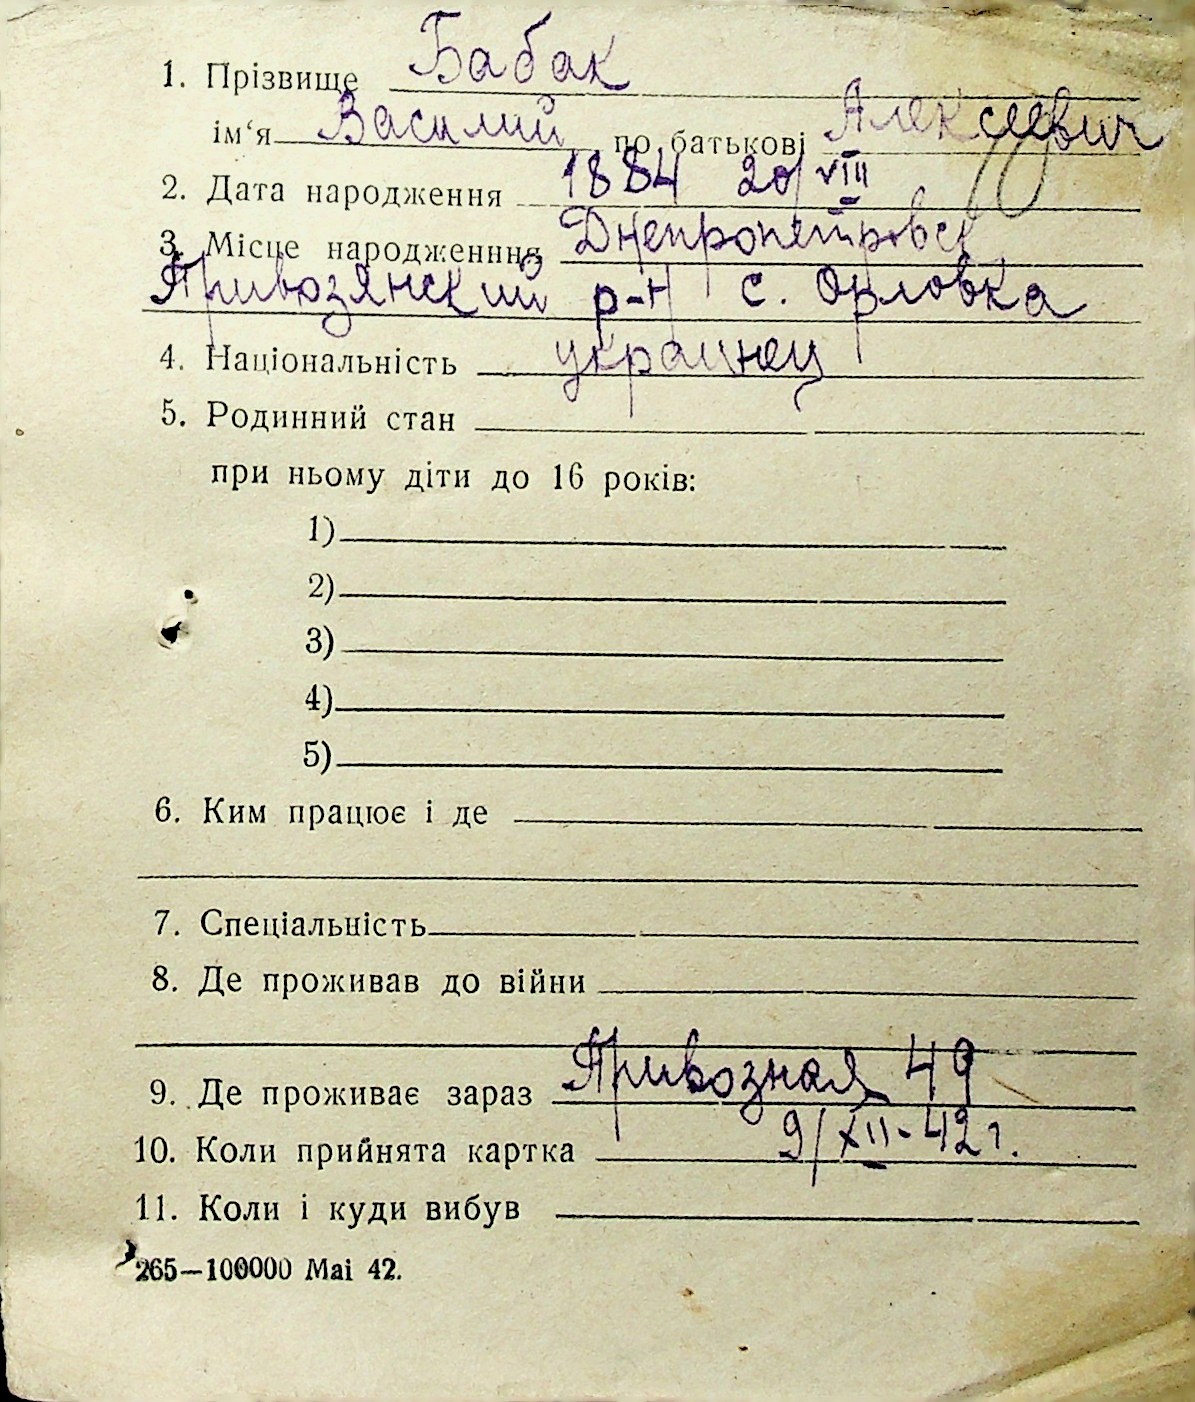 1. Прізвище Бабак
ім'я Василий по батькові Алексеевич
2. Дата народження 1884 20/VIII
3. Місце народженння Днепропетровск
Привозянский р-н с. Орловка
4. Національність украинец
5. Родинний стан
при ньому діти до 16 років:
1)
2)
3)
4)
5)
6. Ким працює і де
7. Спеціальність
8. Де проживав до війни
9. Де проживає зараз Привозная 49
10. Коли прийнята картка 9/XII-42г.
11. Коли і куди вибув
265—100000 Mai 42.